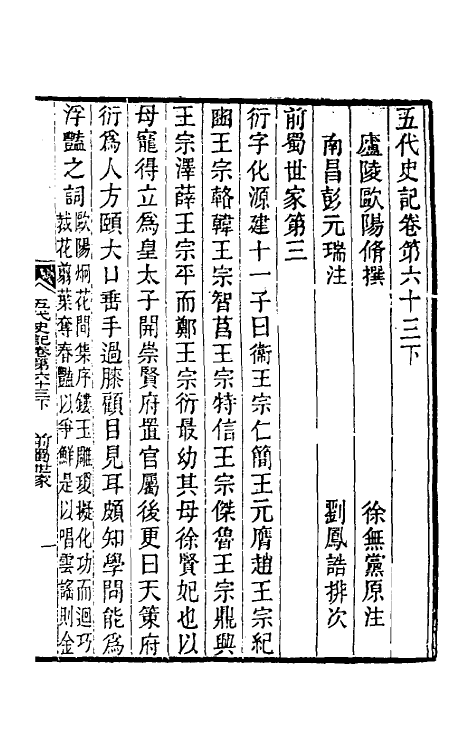 五代史記卷第六十三下
廬陵歐陽脩撰　徐無黨原注
南昌彭元瑞注　劉鳳誥排次
前蜀世家第三
衍字化源建十一子曰衞王宗仁簡王元膺趙王宗紀
豳王宗輅韓王宗智莒王宗特信王宗傑魯王宗鼎興
王宗澤薛王宗平而鄭王宗衍最幼其母徐賢妃也以
母寵得立爲皇太子開崇賢府置官屬後更曰天策府
衍爲人方頤大口垂手過膝顧目見耳頗知學問能爲
浮豔之詞
歐陽炯花間集序鏤玉雕瓊擬化功而迴巧
裁花翦葉奪春豔以爭鮮是以唱雲謠則金
五代史記卷第六十三下　前蜀世家　一